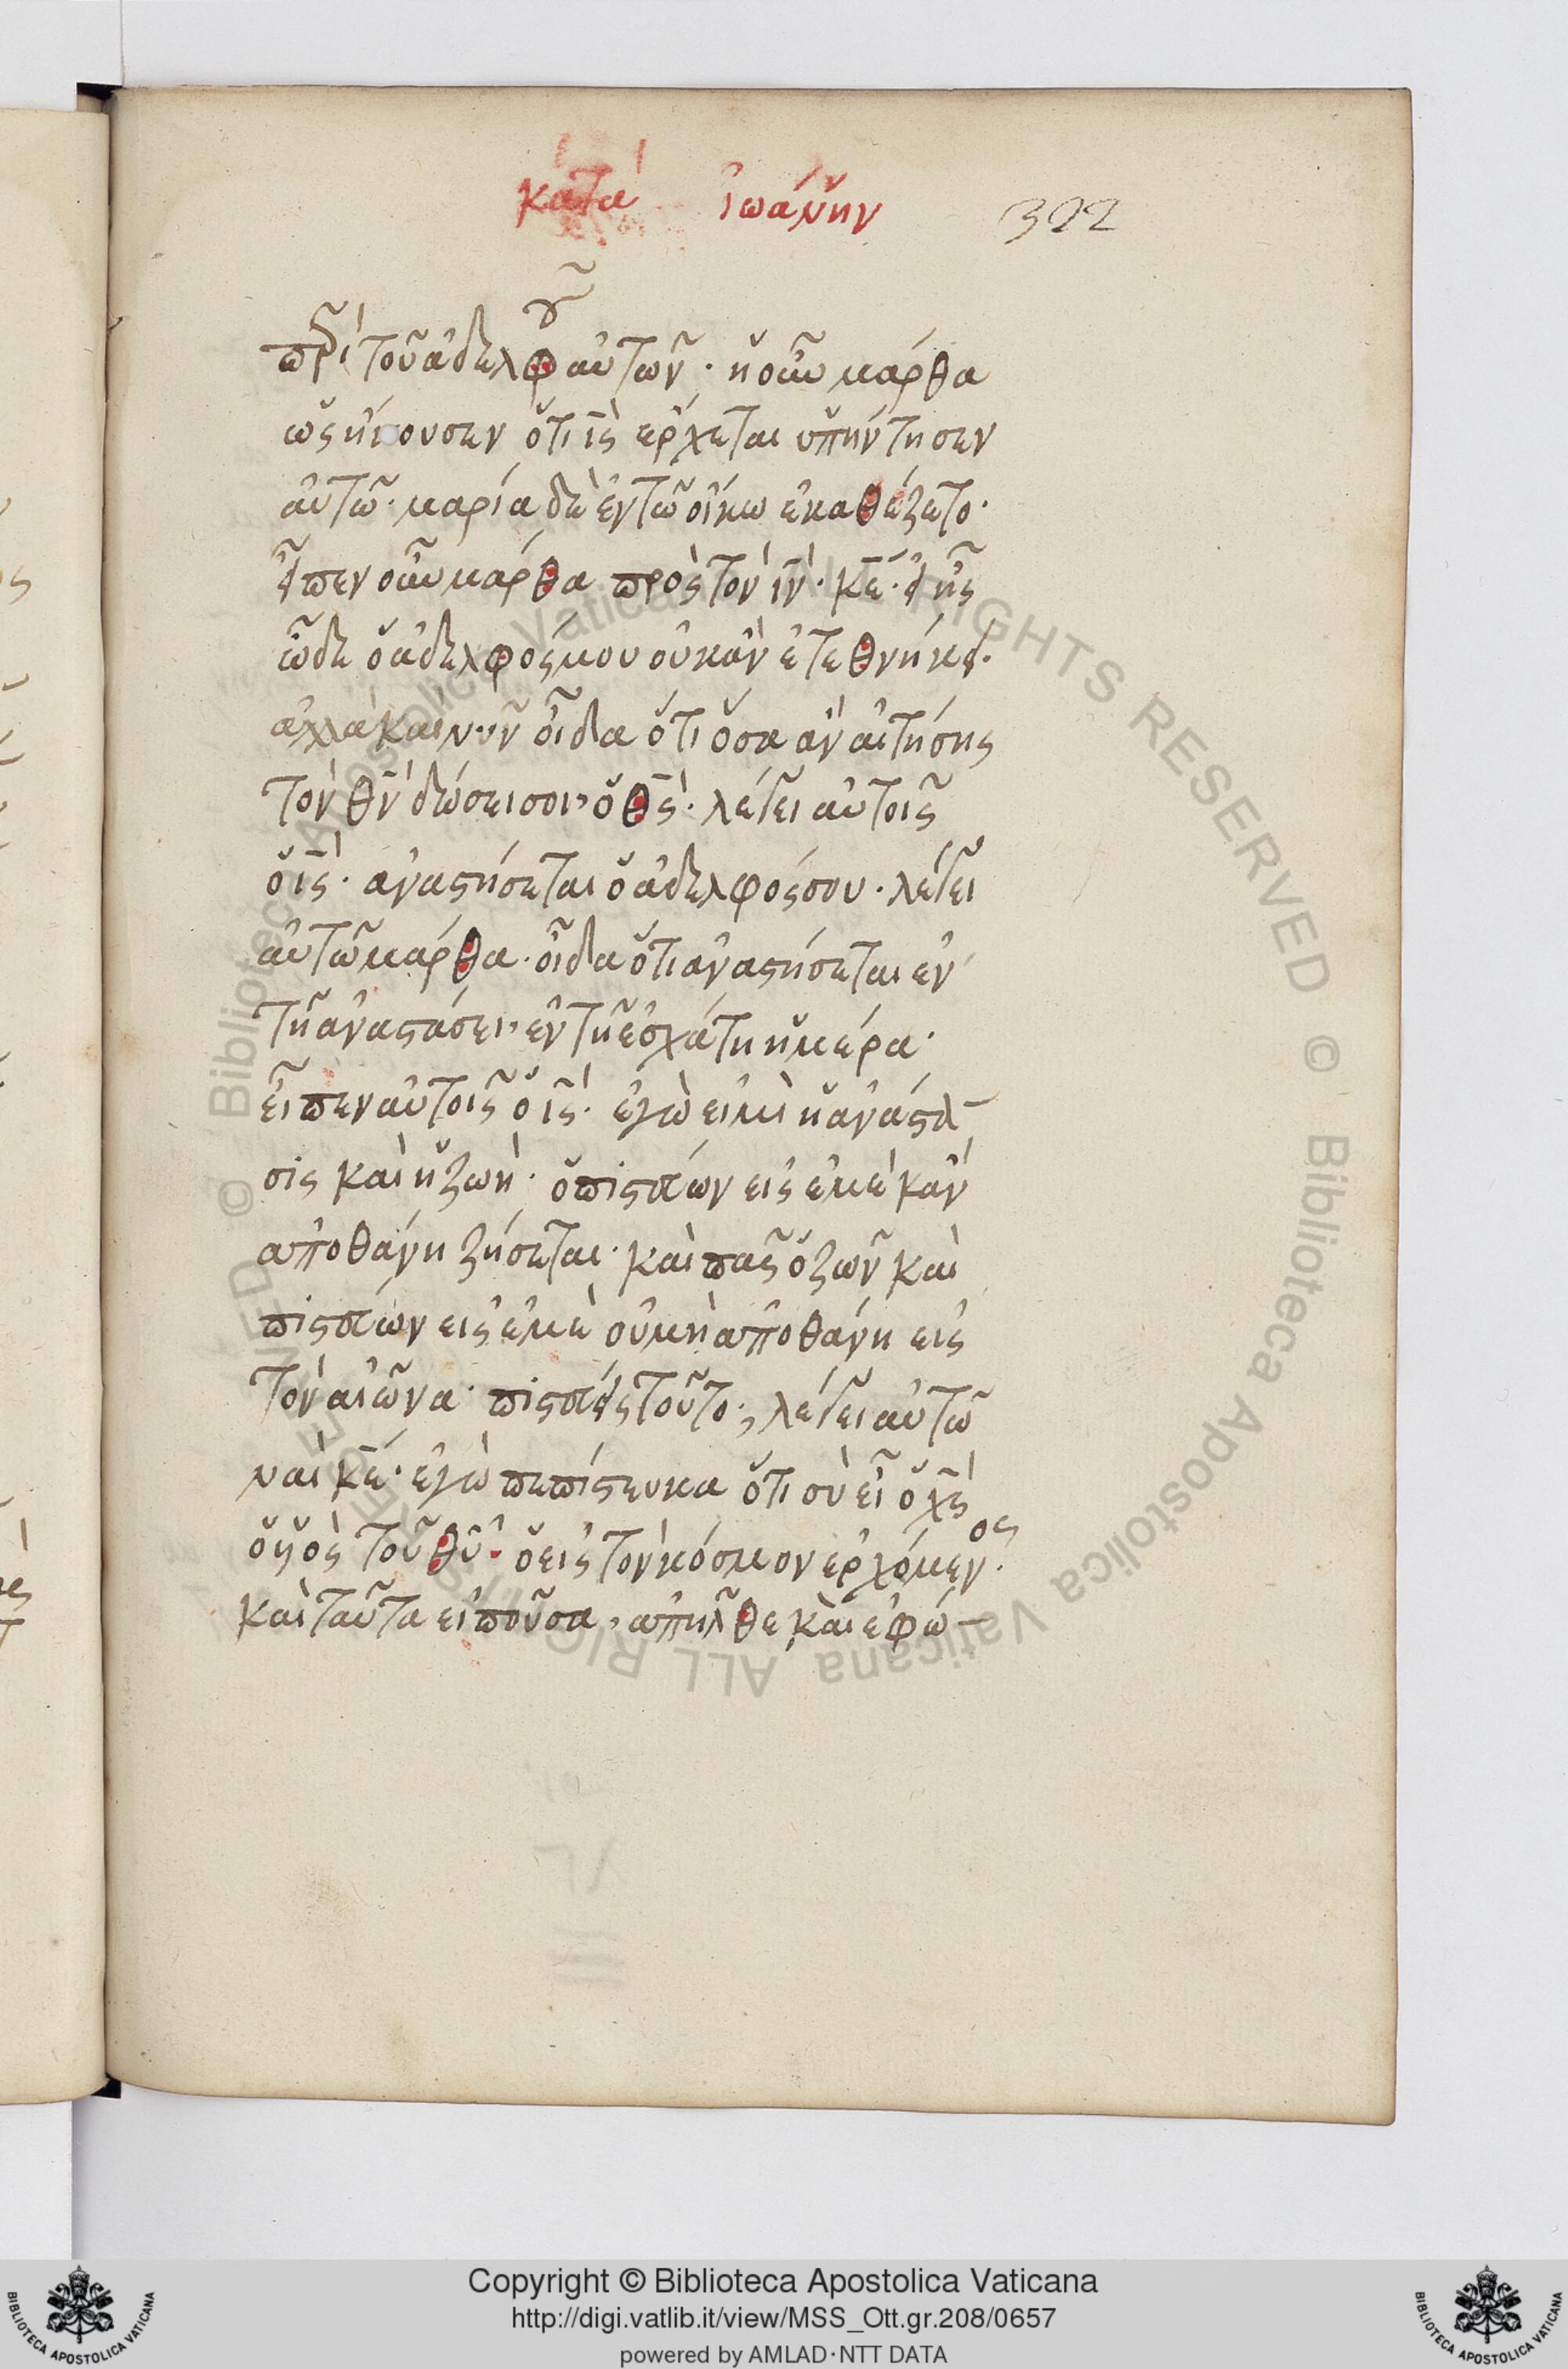 κατὰ ἰωάννην 322
περὶ τοῦ ἀδελφοῦ αὐτῶν · ἡ οὖν μάρθα
ὡς ἤκουσεν ὅτι ις̅ ἔρχεται ὑπήντησεν
αὐτῶ · μαρία δὲ ἐν τῶ οἴκω ἐκαθέζετο ·
εἶπεν οὖν μάρθα πρὸς τὸν ιν̅ · κε̅ · εἰ ἦς
ὧδε ὁ ἀδελφός μου οὐκ ἂν ἐτεθνήκει ·
ἀλλὰ καὶ νῦν οἶδα ὅτι ὅσα ἂν αἰτήσης
τὸν θν̅ δώσει σοι, ὁ θς̅ · λέγει αὐτοῖς
ὁ ις̅ · ἀναστήσεται ὁ ἀδελφός σου · λέγει
αὐτῶ μάρθα · οἶδα ὅτι ἀναστήσεται ἐν
τῆ ἀναστάσει, ἐν τῆ ἐσχάτη ἡμέρα ·
εἶπεν αὐτοῖς ὁ ις̅ · ἐγώ εἰμι ἡ ἀνάστα
σις καὶ ἡ ζωὴ · ὁ πιστεύων εἰς ἐμὲ κἂν
ἀποθάνη ζήσεται · καὶ πᾶς ὁ ζῶν καὶ
πιστεύων εἰς ἐμὲ οὐ μὴ ἀποθάνη εἰς
τὸν αἰῶνα · πιστεύεις τοῦτο ; λέγει αὐτῶ
ναὶ κε̅ · ἐγὼ πεπίστευκα ὅτι σὺ εἶ ὁ χς̅
ὁ υἱὸς τοῦ θυ̅ · ὁ εἰς τὸν κόσμον ἐρχόμενος ·
καὶ ταῦτα εἰποῦσα, ἀπῆλθε καὶ ἐφώ
© Biblioteca Apostolica Vaticana ALL RIGHTS RESERVED © Biblioteca Apostolica Vaticana ALL RIGHTS RESERVED
Copyright © Biblioteca Apostolica Vaticana
http://digi.vatlib.it/view/MSS_Ott.gr.208/0657
powered by AMLAD·NTT DATA
BIBLIOTECA APOSTOLICA VATICANA
BIBLIOTECA APOSTOLICA VATICANA